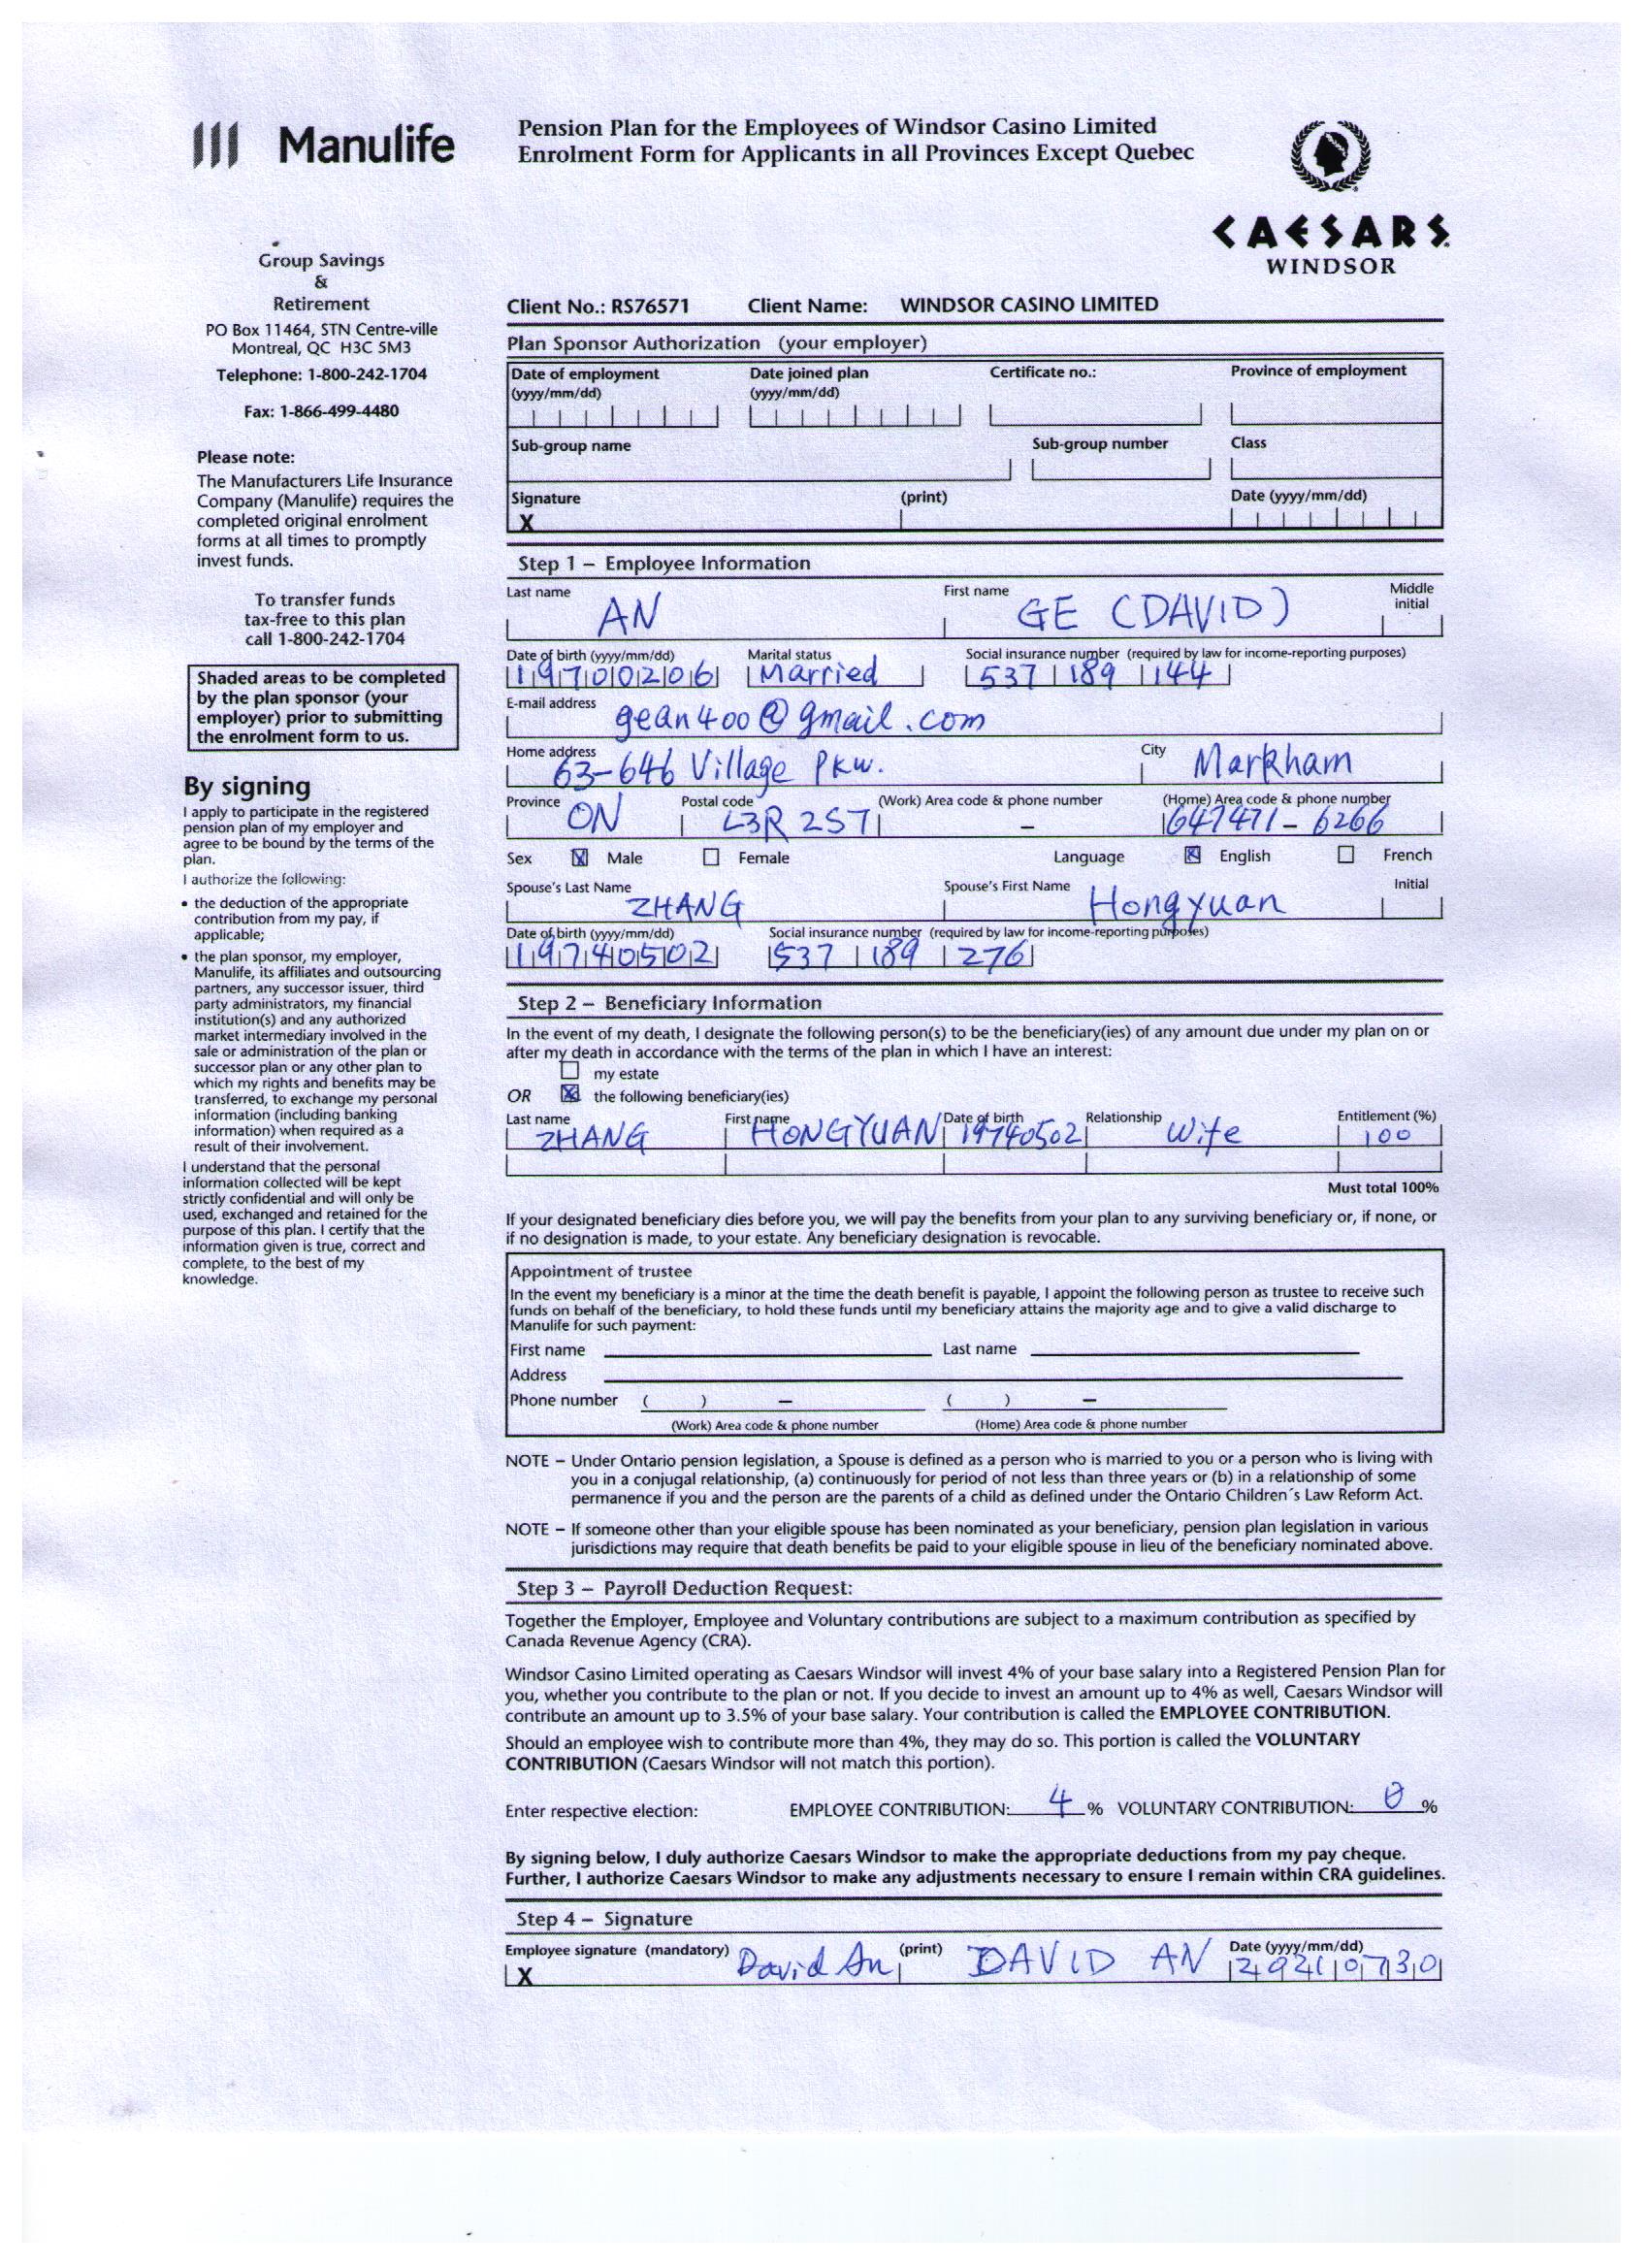 Manulife
Pension Plan for the Employees of Windsor Casino Limited
Enrolment Form for Applicants in all Provinces Except Quebec
CAESARS
WINDSOR
Group Savings
&
Retirement
PO Box 11464, STN Centre-ville
Montreal, QC H3C 5M3
Telephone: 1-800-242-1704
Fax: 1-866-499-4480
Please note:
The Manufacturers Life Insurance
Company (Manulife) requires the
completed original enrolment
forms at all times to promptly
invest funds.
To transfer funds
tax-free to this plan
call 1-800-242-1704
Shaded areas to be completed
by the plan sponsor (your
employer) prior to submitting
the enrolment form to us.
By signing
I apply to participate in the registered
pension plan of my employer and
agree to be bound by the terms of the
plan.
I authorize the following:
• the deduction of the appropriate
contribution from my pay, if
applicable;
• the plan sponsor, my employer,
Manulife, its affiliates and outsourcing
partners, any successor issuer, third
party administrators, my financial
institution(s) and any authorized
market intermediary involved in the
sale or administration of the plan or
successor plan or any other plan to
which my rights and benefits may be
transferred, to exchange my personal
information (including banking
information) when required as a
result of their involvement.
I understand that the personal
information collected will be kept
strictly confidential and will only be
used, exchanged and retained for the
purpose of this plan. I certify that the
information given is true, correct and
complete, to the best of my
knowledge.
Client No.: RS76571 Client Name: WINDSOR CASINO LIMITED
Plan Sponsor Authorization (your employer)
Date of employment Date joined plan Certificate no.: Province of employment
(yyyy/mm/dd) (yyyy/mm/dd)
Sub-group name Sub-group number Class
Signature (print) Date (yyyy/mm/dd)
X
Step 1 – Employee Information
Last name First name Middle
initial
AN GE (DAVID)
Date of birth (yyyy/mm/dd) Marital status Social insurance number (required by law for income-reporting purposes)
19700206 Married 537 189 144
E-mail address
gean400@gmail.com
Home address City
63-646 Village Pkw. Markham
Province Postal code (Work) Area code & phone number (Home) Area code & phone number
ON L3R 2S7 – 647471-6266
Sex Male Female Language English French
Spouse's Last Name Spouse's First Name Initial
ZHANG Hongyuan
Date of birth (yyyy/mm/dd) Social insurance number (required by law for income-reporting purposes)
19740502 537 189 276
Step 2 – Beneficiary Information
In the event of my death, I designate the following person(s) to be the beneficiary(ies) of any amount due under my plan on or
after my death in accordance with the terms of the plan in which I have an interest:
my estate
OR the following beneficiary(ies)
Last name First name Date of birth Relationship Entitlement (%)
ZHANG HONGYUAN 19740502 Wife 100
Must total 100%
If your designated beneficiary dies before you, we will pay the benefits from your plan to any surviving beneficiary or, if none, or
if no designation is made, to your estate. Any beneficiary designation is revocable.
Appointment of trustee
In the event my beneficiary is a minor at the time the death benefit is payable, I appoint the following person as trustee to receive such
funds on behalf of the beneficiary, to hold these funds until my beneficiary attains the majority age and to give a valid discharge to
Manulife for such payment:
First name Last name
Address
Phone number ( ) – ( ) –
(Work) Area code & phone number (Home) Area code & phone number
NOTE – Under Ontario pension legislation, a Spouse is defined as a person who is married to you or a person who is living with
you in a conjugal relationship, (a) continuously for period of not less than three years or (b) in a relationship of some
permanence if you and the person are the parents of a child as defined under the Ontario Children´s Law Reform Act.
NOTE – If someone other than your eligible spouse has been nominated as your beneficiary, pension plan legislation in various
jurisdictions may require that death benefits be paid to your eligible spouse in lieu of the beneficiary nominated above.
Step 3 – Payroll Deduction Request:
Together the Employer, Employee and Voluntary contributions are subject to a maximum contribution as specified by
Canada Revenue Agency (CRA).
Windsor Casino Limited operating as Caesars Windsor will invest 4% of your base salary into a Registered Pension Plan for
you, whether you contribute to the plan or not. If you decide to invest an amount up to 4% as well, Caesars Windsor will
contribute an amount up to 3.5% of your base salary. Your contribution is called the EMPLOYEE CONTRIBUTION.
Should an employee wish to contribute more than 4%, they may do so. This portion is called the VOLUNTARY
CONTRIBUTION (Caesars Windsor will not match this portion).
Enter respective election: EMPLOYEE CONTRIBUTION: 4 % VOLUNTARY CONTRIBUTION: 0 %
By signing below, I duly authorize Caesars Windsor to make the appropriate deductions from my pay cheque.
Further, I authorize Caesars Windsor to make any adjustments necessary to ensure I remain within CRA guidelines.
Step 4 – Signature
Employee signature (mandatory) (print) Date (yyyy/mm/dd)
X David An DAVID AN 20210730